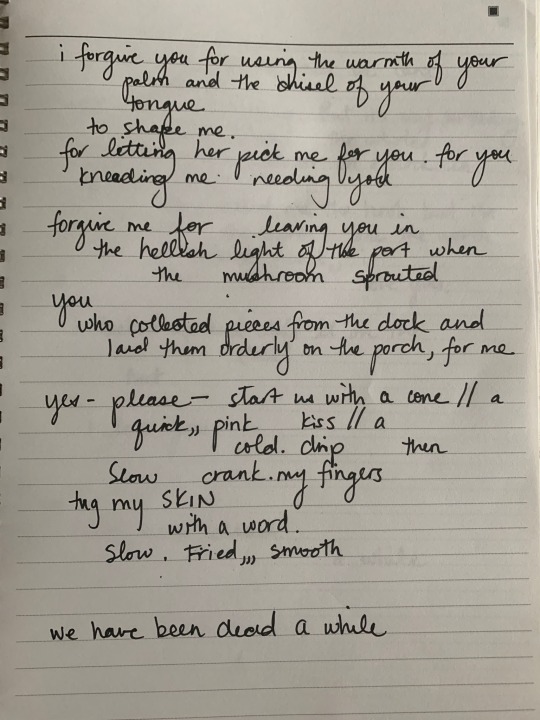 i forgive you for using the warmth of your
palm and the chisel of your
tongue
to shape me.
for letting her pick me for you. for you
kneading me. needing you
forgive me for leaving you in
the hellish light of the port when
the mushroom sprouted
you
who collected pieces from the dock and
laid them orderly on the porch, for me
yes - please - start us with a cone // a
quick,, pink kiss // a
cold. drip then
slow crank. my fingers
tug my SKIN
with a word.
slow. Fried,,, smooth
we have been dead a while